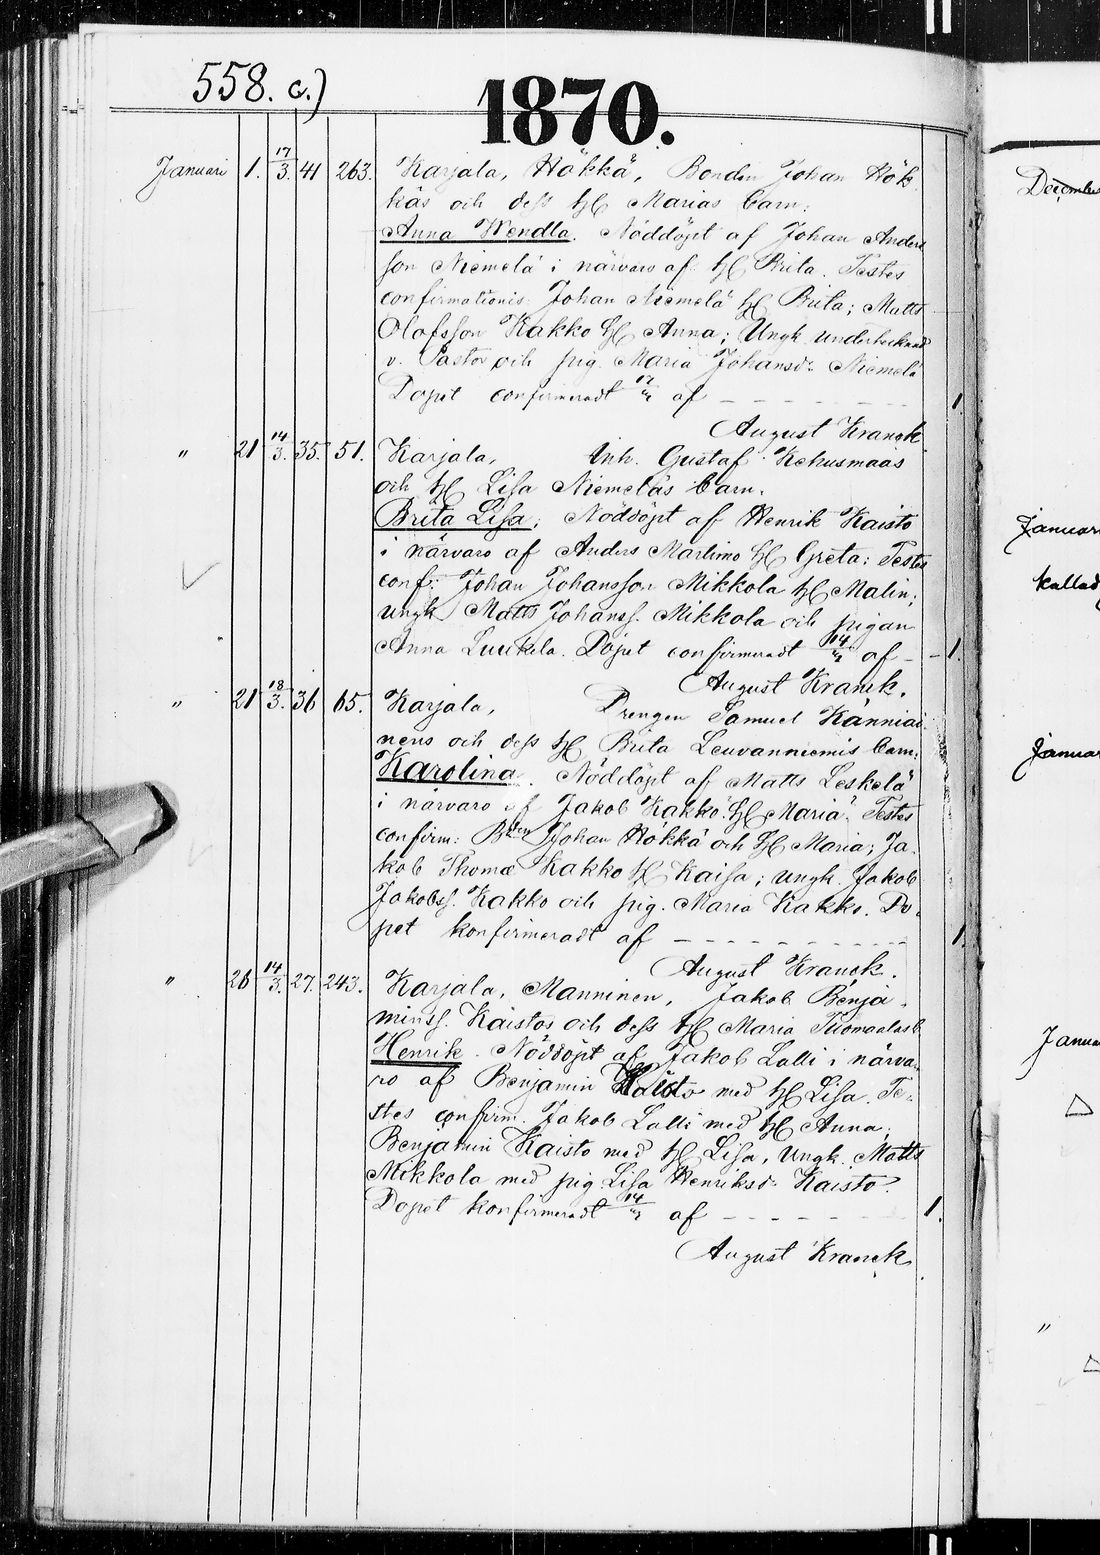 558. a.)
1870.
Januari 1. 17/3. 41 263. Karjala, Hökkä, Bonden Johan Hök-
käs och dess H Marias barn:
Anna Wendla. Nöddöpt af Johan Anders
son Niemelä i närvaro af H Brita. Testes
confirmationis: Johan Niemelä H Brita; Matts
Olofsson Kakko H Anna; Ungk. undertecknad
v. Pastor och pig. Maria Johansd: Niemelä
Dopet confirmeradt 17/3 af - - - - - - - - - 1.
August Kranck.
" 21 14/3. 35. 51. Karjala, Inh. Gustaf Kehusmaas
och H Lisa Niemeläs barn.
Brita Lisa; Nöddöpt af Henrik Kaisto
i närvaro af Anders Martimo H Greta: Testes
conf: Johan Johansson Mikkola H Malin;
ungk Matts Johanss. Mikkola och pigan
Anna Luukela. Döpet confirmeradt 14/3 af - - 1.
August Kranck.
" 21 18/3. 36 65. Karjala, Drengen Samuel Känniäi
nens och dess H Brita Leuvanniemis barn:
Karolina. Nöddöpt af Matts Leskelä
i närvaro af Jakob Kakko H Maria. Testes
confirm: Bden Johan Hökkä och H Maria; Ja-
kob Thomæ Kakko H Kaisa; ungk. Jakob
Jakobss. Kakko och pig. Maria Kakko. Do-
pet konfirmeradt af - - - - - - - - - 1.
August Kranck.
" 26 14/3. 27. 243. Karjala, Manninen, Jakob Benja-
minss. Kaistos och dess H Maria
Henrik. Nöddöpt af Jakob Lalli i närva-
ro af Benjamin Kaisto med H Lisa. Te-
stes confirm. Jakob Lalli med H Anna;
Benjamin Kaisto med H Lisa, Ungk. Matts
Mikkola med pig Lisa Henriksd: Kaisto.
Dopet konfirmeradt 14/3 af - - - - - - - 1.
August Kranck
December
Januari
kallad
Januari
Januari
"